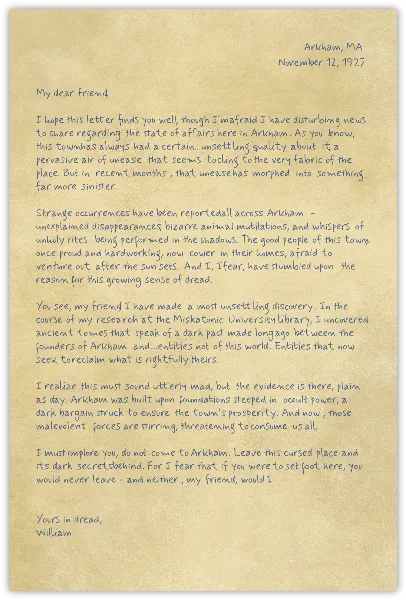 Arkham, MA
November 12, 1927
My dear friend,
I hope this letter finds you well, though I'm afraid I have disturbing news
to share regarding the state of affairs here in Arkham. As you know,
this town has always had a certain...unsettling quality about it, a
pervasive air of unease that seems to cling to the very fabric of the
place. But in recent months, that unease has morphed into something
far more sinister.
Strange occurrences have been reported all across Arkham -
unexplained disappearances, bizarre animal mutilations, and whispers of
unholy rites being performed in the shadows. The good people of this town,
once proud and hardworking, now cower in their homes, afraid to
venture out after the sun sets. And I, I fear, have stumbled upon the
reason for this growing sense of dread.
You see, my friend, I have made a most unsettling discovery. In the
course of my research at the Miskatonic University library, I uncovered
ancient tomes that speak of a dark pact made long ago between the
founders of Arkham and...entities not of this world. Entities that now
seek to reclaim what is rightfully theirs.
I realize this must sound utterly mad, but the evidence is there, plain
as day. Arkham was built upon foundations steeped in occult power, a
dark bargain struck to ensure the town's prosperity. And now, those
malevolent forces are stirring, threatening to consume us all.
I must implore you, do not come to Arkham. Leave this cursed place and
its dark secrets behind. For I fear that if you were to set foot here, you
would never leave - and neither, my friend, would I.
Yours in dread,
William